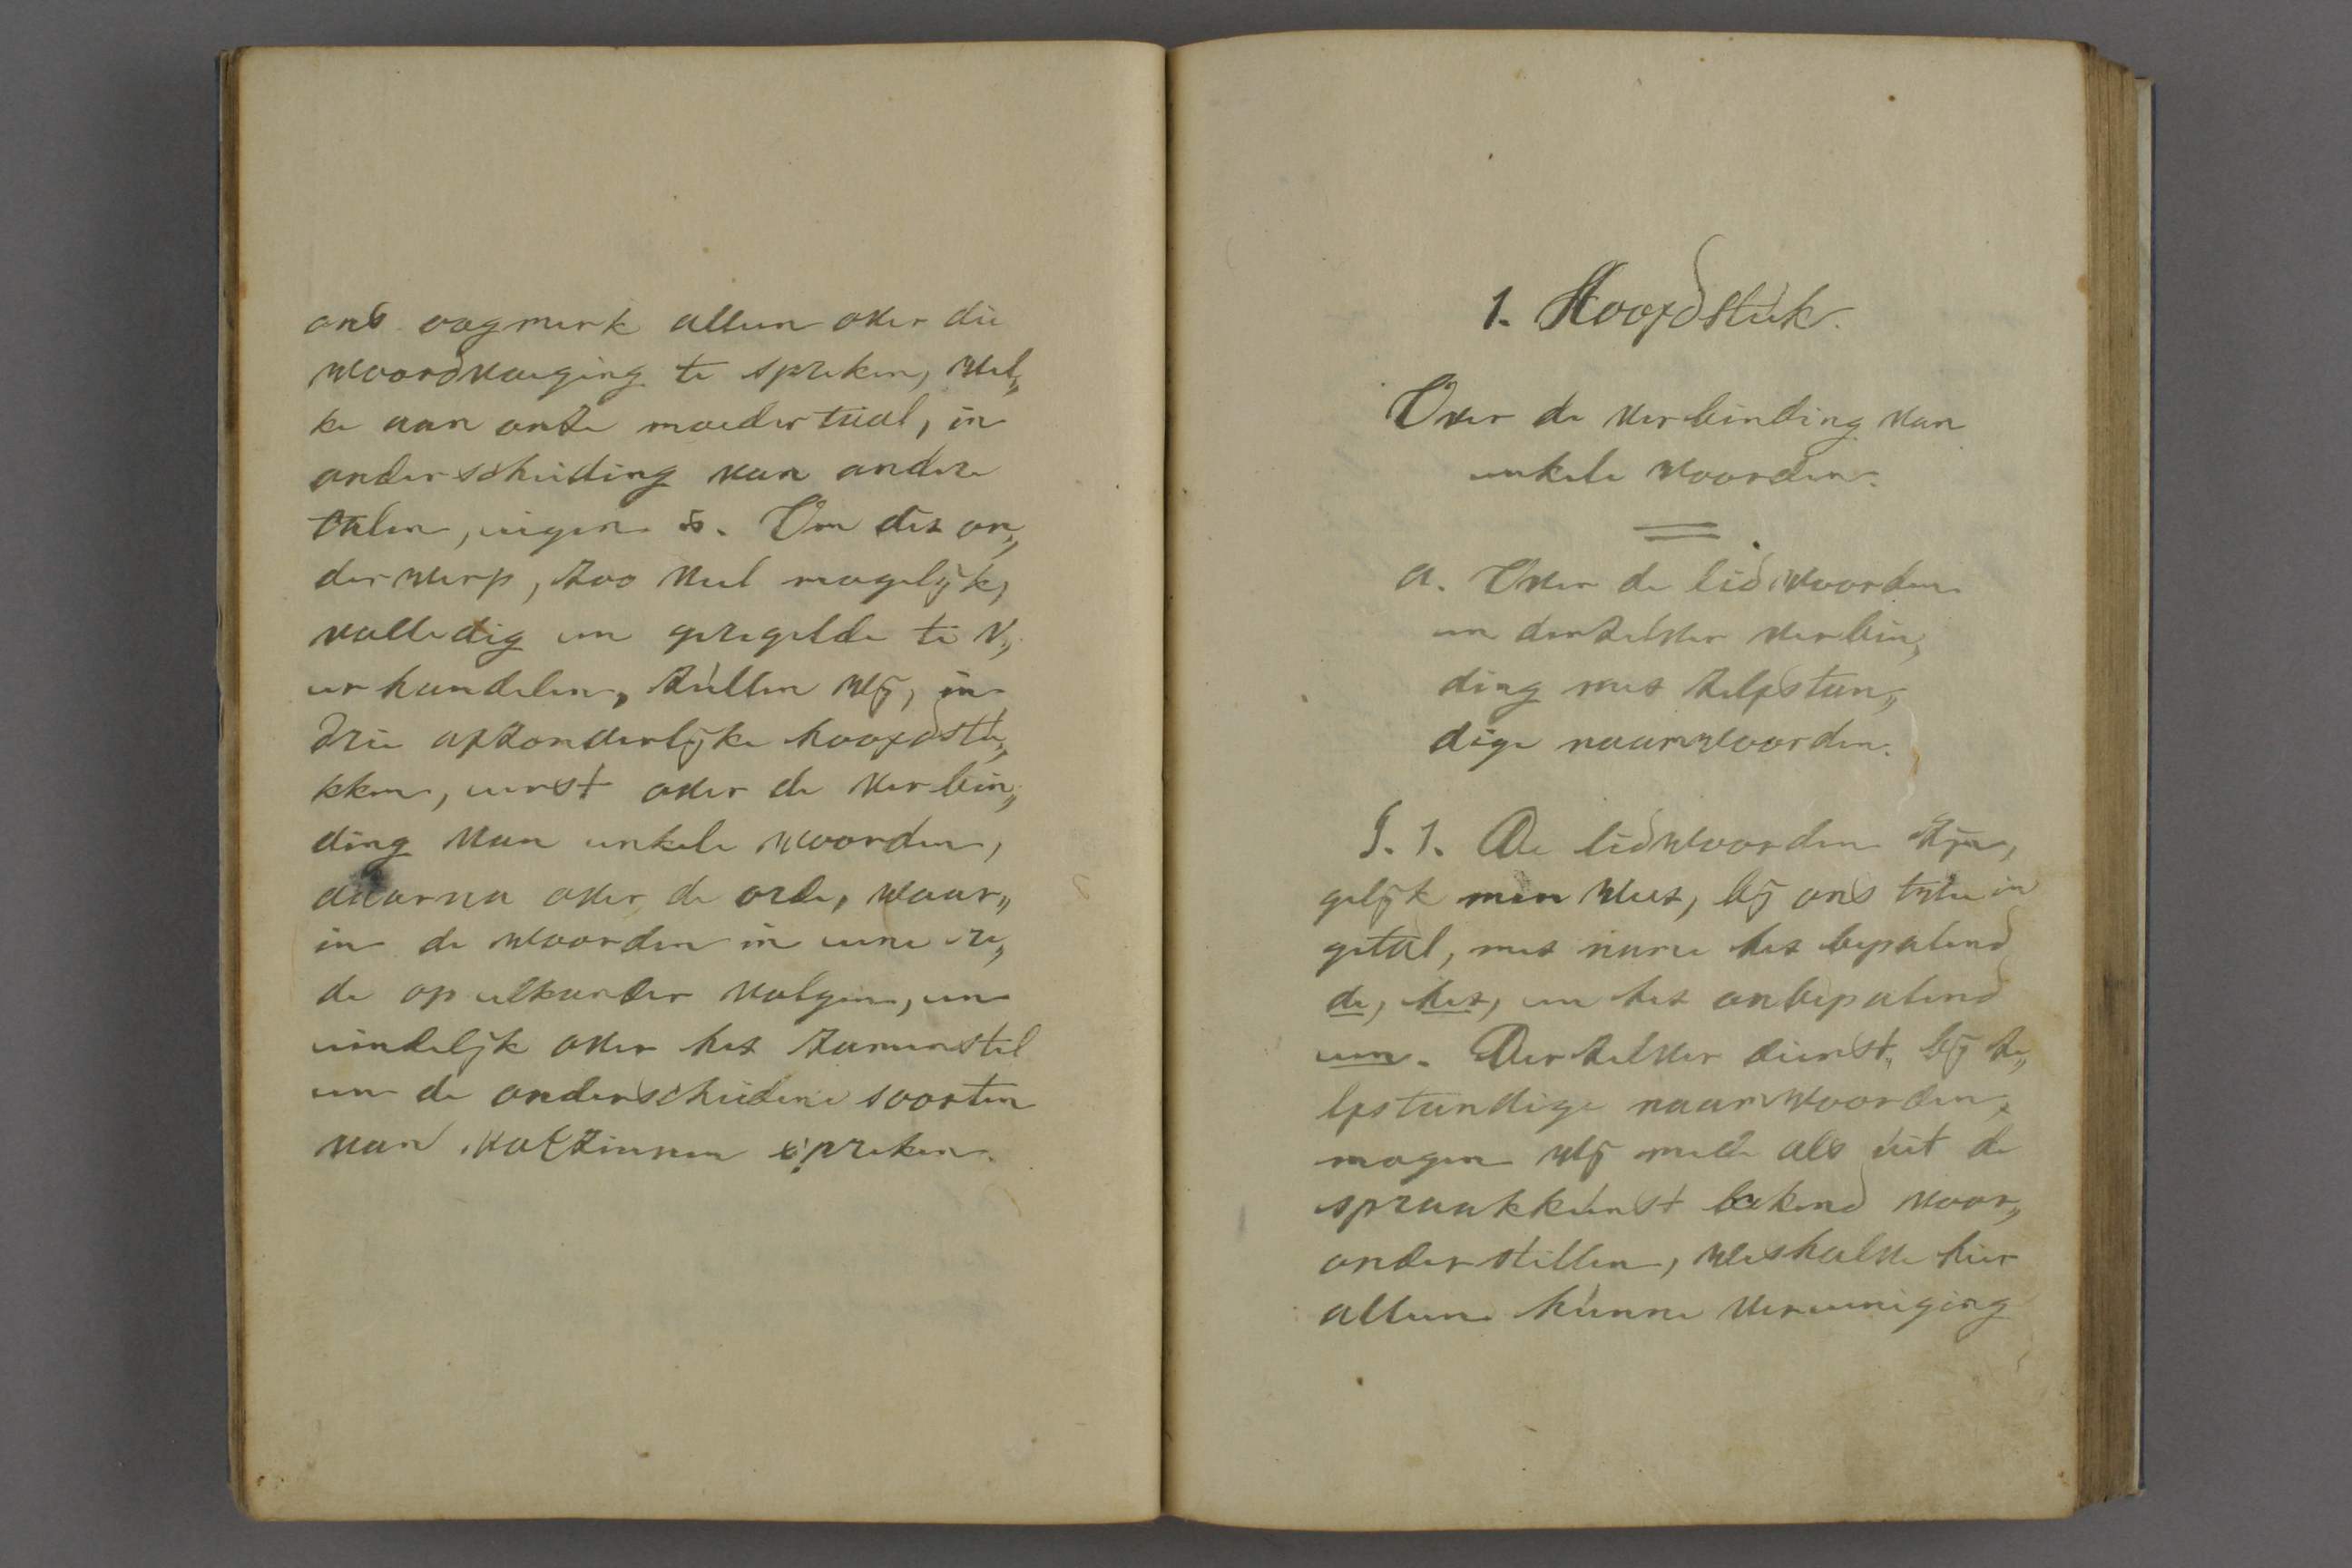 ons oogmerk alleen over die
woordvoeging te spreken, wel„
ke aan onze moedertaal, in
onderscheiding van andere
talen, eigen is. Om dit on„
derwerp, zoo veel mogelijk,
volledig en geregelde te v„
erhandelen, zullen wij, in
drie afzonderlijke hoofdstu„
kken, eerst over de verbin„
ding van enkele woorden,
daarna over de orde, waar„
in de woorden in eene re„
de op elkander volgen, en
eindelijk over het zamenstel
en de onderscheidene soorten
van volzinnen spreken.
1. Hoofdstuk.
Over de verbinding van
enkele woorden.
a. Over de lidwoorden
en derzelver verbin„
ding met zelfstan„
dige naamwoorden.
§. 1. De lidwoorden zijn,
gelijk men weet, bij ons twee in
getal, met name het bepalend
de, het, en het onbepalend
een. Derzelver dienst, bij ze„
lfstandige naamwoorden,
mogen wij mede als uit de
spraakkunst bekend voor„
onderstellen, weshalve hier
alleen hunne vereeniging